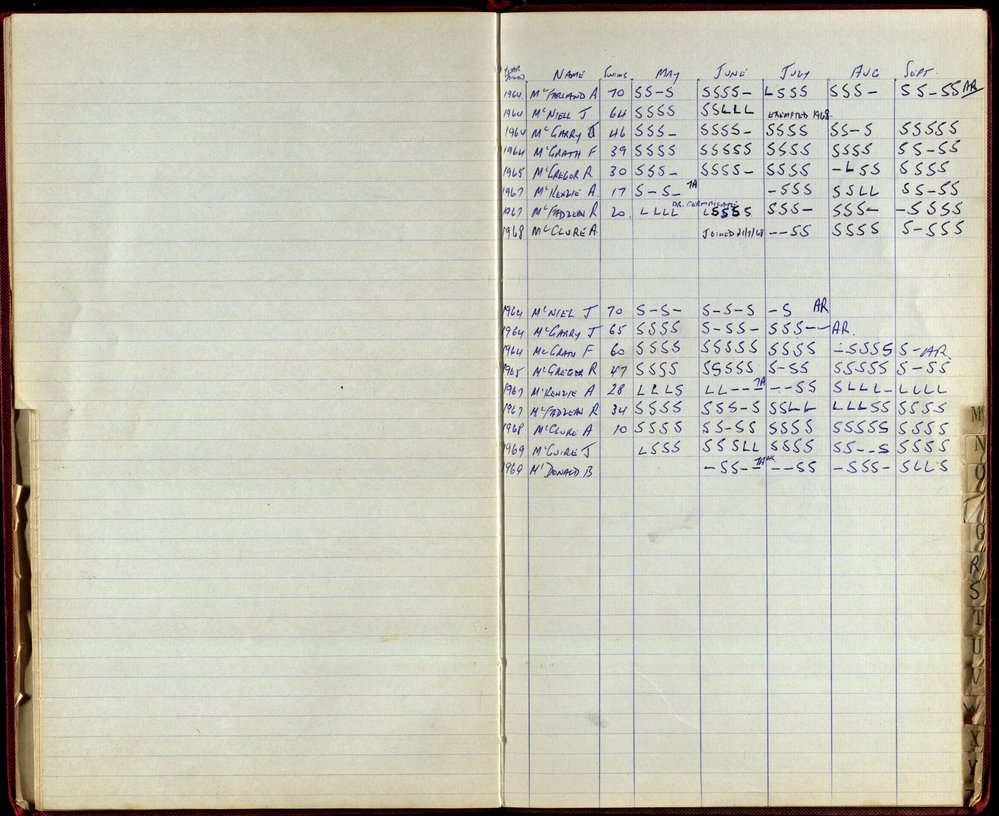 YEAR JOINED NAME SWIMS MAY JUNE JULY AUG SEPT.
1964. McFARLAND A 70 SS-S SSSS- LSSS SSS- SS-SS AR
1964 McNIELL J 64 SSSS SSLLL EXEMPTED 1968.
1964 McGARRY J 46 SSS- SSSS- SSSS SS-S SSSSS
1964 McGRATH F 39 SSSS SSSSS SSSS SSSS SS-SS
1965 McGREGOR R 30 SSS- SSSS- SSSS -LSS SSSS
1967 McKENZIE A. 17 S-S- TA -SSS SSLL SS-SS
1967 McFADZEAN R 20. LLLL DR. CERTIFICATE LSSSS SSS- SSS- -SSSS
1968 McCLURE A. JOINED 21/7/68 --SS SSSS S-SSS
1964 McNIEL J 70 S-S- S-S-S -S AR
1964 McGARRY J 65 SSSS S-SS- SSS-- AR.
1964 McGRATH F 60 SSSS SSSSS SSSS -SSSS S-AR.
1965 McGREGOR R 47 SSSS SSSSS S-SS SSSSS S-SS
1967 McKENZIE A 28 LLLS LL--- TA --SS SLLL- LLLL
1967 McFADZEAN R 34 SSSS SSS-S SSLL LLLSS SSSS
1968 McCLURE A 10 SSSS SS-SS SSSS SSSSS SSSS
1969 McGUIRE J LSSS SSSLL SSSS SS--S SSSS
1969 McDONALD B -SS-- --SS -SSS- SLLS
M
N
O
Q
R
S
T
U
V
W
X
Y
Z